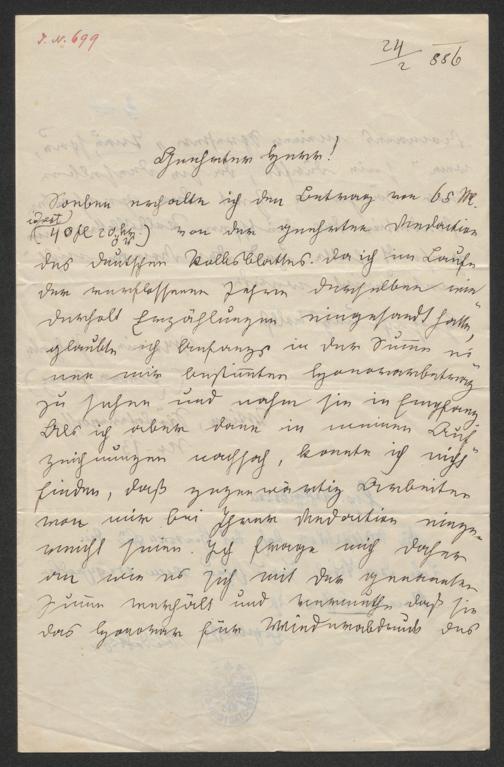 J. N. 699
24/2 886
Geehrter Herr!
Soeben erhalte ich den Betrag von 65 M.
(40 fl 20 kr) von der geehrten Redaction
des deutschen Volksblattes. Da ich im Laufe
der verflossenen Jahre derselben wie-
derholt Erzählungen eingesandt hatte,
glaubte ich Anfangs in der Summe ei-
nen mir bestimmten Honorarbetrag
zu sehen und nahm sie in Empfang
Als ich aber dann in meinen Auf-
zeichnungen nachsah, konnte ich nicht
finden, daß gegenwärtig Arbeiten
von mir bei Ihrer Redaction einge-
reicht seien. Ich frage mich daher
an wie es sich mit der genannten
Summe verhält und vermuthe daß sie
das Honorar für Wiederabdruck des